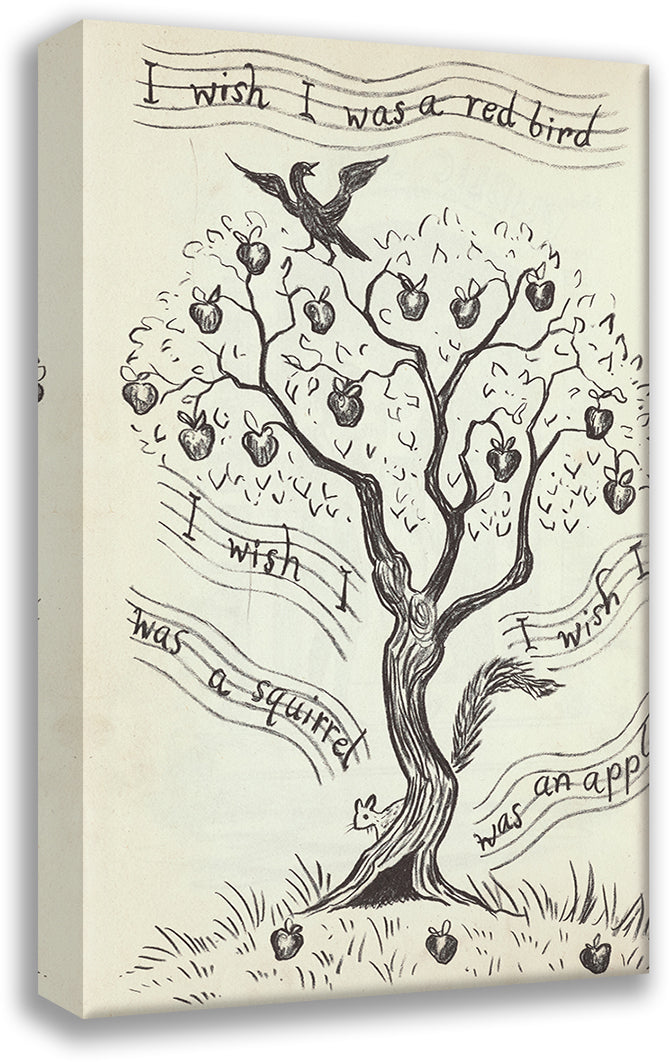 I wish I was a red bird
I wish I
was a squirrel
I wish I
was an appl